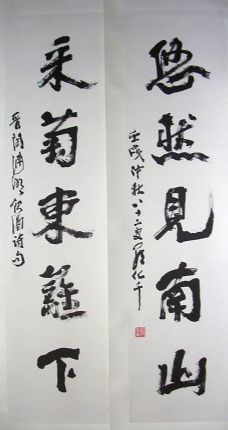 采菊東籬下
晉陶淵明飲酒詩句
悠然見南山
壬戌仲秋八十二叟